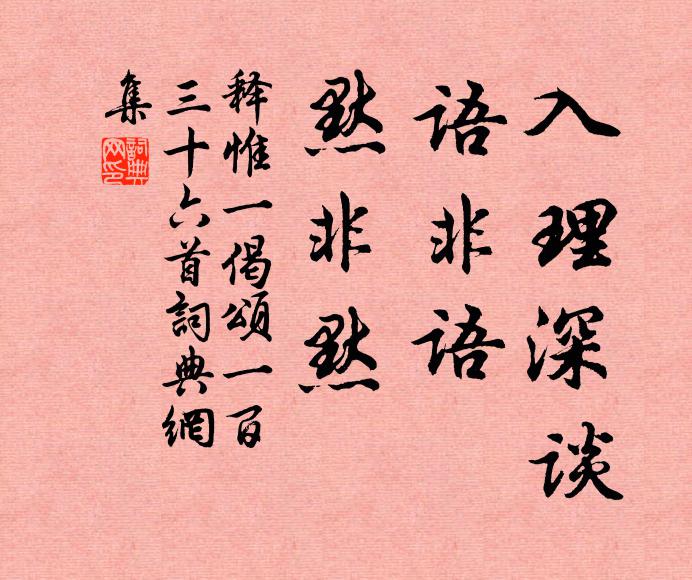 入理深谈
語非語
默非默
释惟一偈頌一百
三十六首詞典網
集
詞典网印